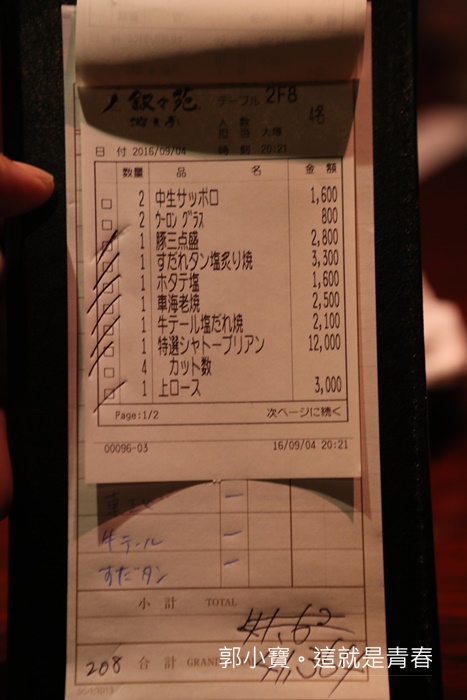 叙々苑 テーブル 2F8
人数 4名
担当 大塚
日 付 2016/09/04 時 刻 20:21
数量 品 名 金 額
2 中生サッポロ 1,600
2 ウーロン グラス 800
1 豚三点盛 2,800
1 すだれタン塩炙り焼 3,300
1 ホタテ塩 1,600
1 車海老焼 2,500
1 牛テール塩だれ焼 2,100
1 特選シャトーブリアン 12,000
4 カット数
1 上ロース 3,000
Page:1/2 次ページに続く
00096-03 16/09/04 20:21
牛テール ー
すだタン ー
小 計 TOTAL
208 合 計 GRAND
郭小寶。這就是青春